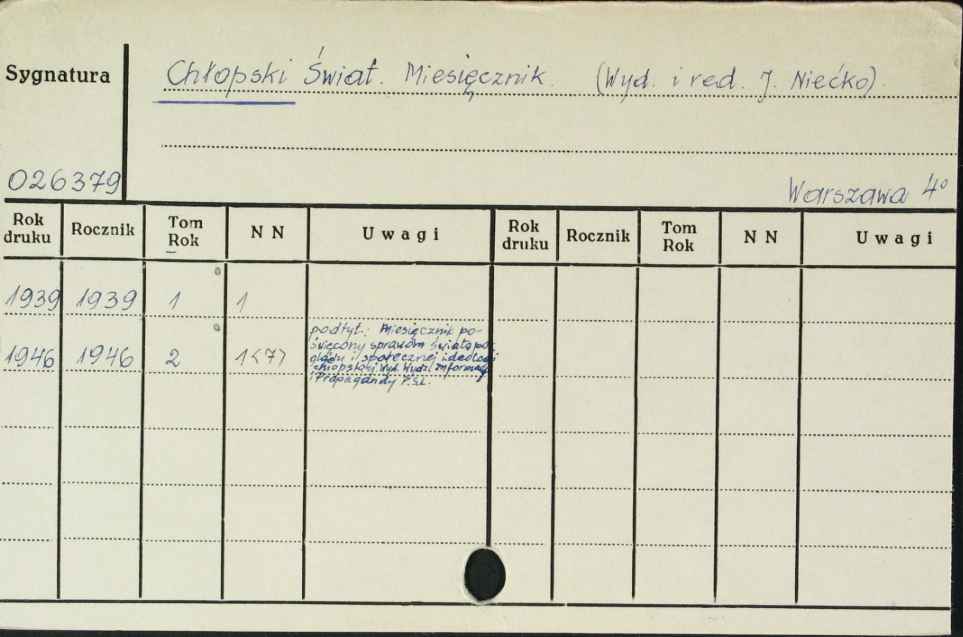 Sygnatura
Chłopski Świat. Miesięcznik. (Wyd. i red. J. Niećko).
026379
Warszawa 4°
Rok druku Rocznik Tom Rok N N Uwagi Rok druku Rocznik Tom Rok N N Uwagi
1939 1939 1 1
1946 1946 2 1<7>
podtyt.: Miesięcznik po-
święcony sprawom światopo-
glądu i społecznej ideologi
chłopskiej Wyd. Wydz. Informacji
i Propagandy P.S.L.